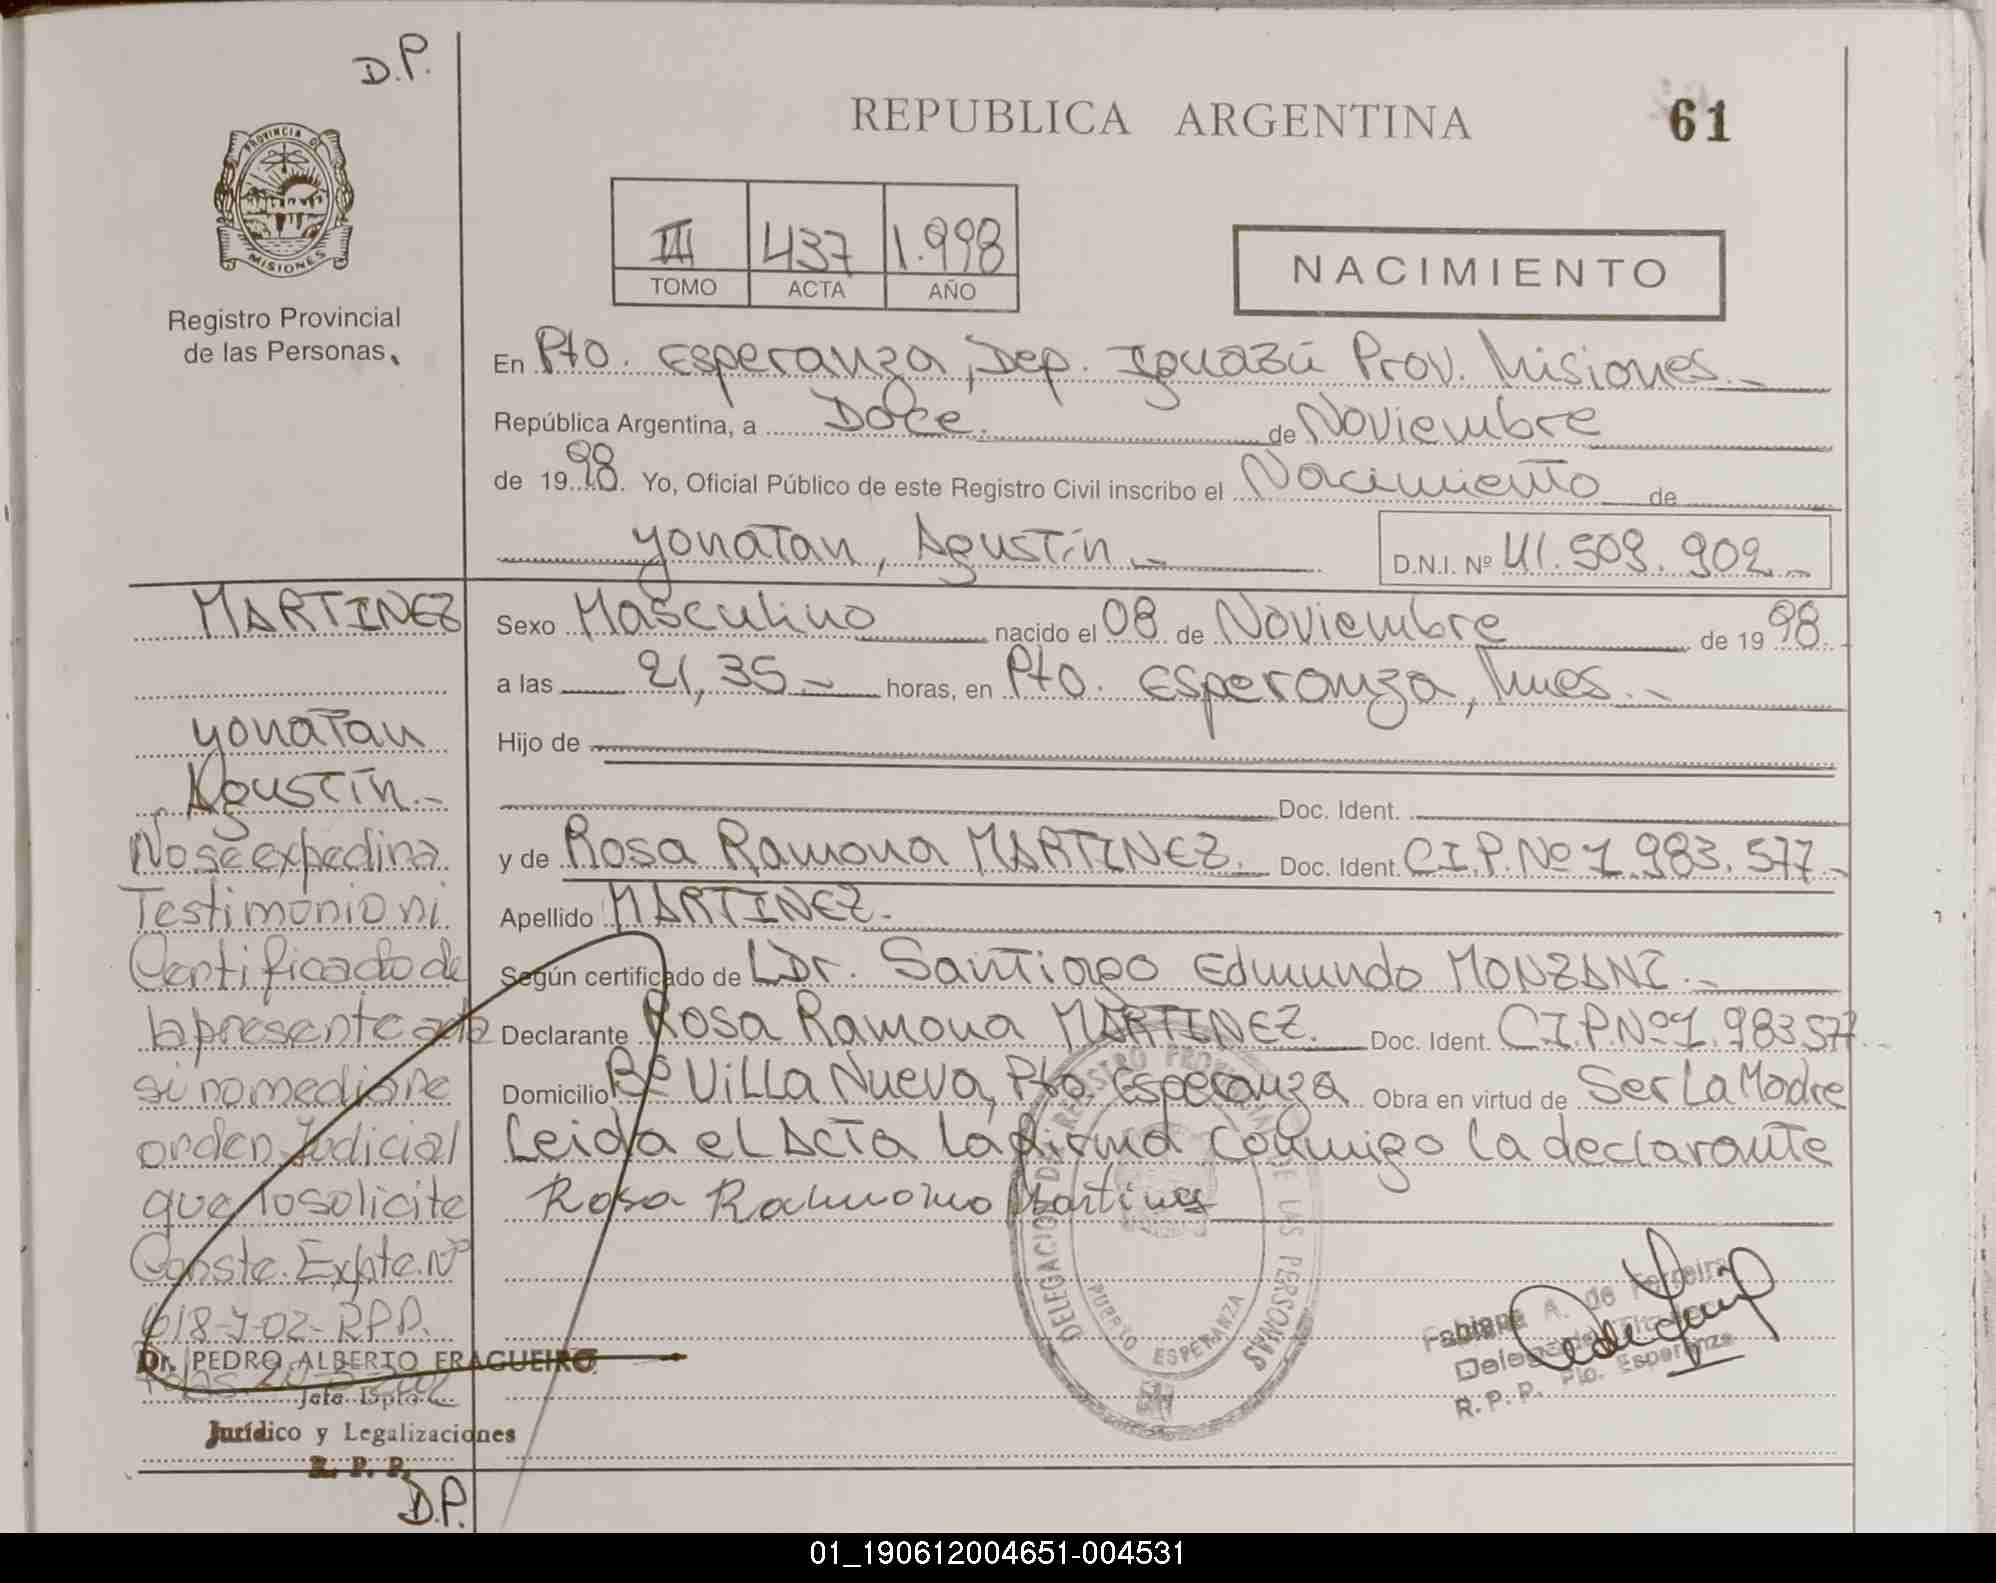 D.P.
REPUBLICA ARGENTINA
61
PROVINCIA DE
MISIONES
Registro Provincial
de las Personas
III 437 1.998
TOMO ACTA AÑO
NACIMIENTO
En Pto. Esperanza, Dep. Iguazú Prov. Misiones.-
República Argentina, a Doce. de Noviembre
de 1998. Yo, Oficial Público de este Registro Civil inscribo el Nacimiento de
Yonatan, Agustín.-
D.N.I. Nº 41.509.902.-
MARTINEZ
Yonatan
Agustín.-
Sexo Masculino nacido el 08 de Noviembre de 1998.
a las 21,35.- horas, en Pto. Esperanza, Mnes.-
Hijo de
Doc. Ident.
y de Rosa Ramona MARTINEZ. Doc. Ident. C.I.P.Nº 1.983.577.-
Apellido MARTINEZ.-
Según certificado de Dr. Santiago Edmundo MONZANI.-
Declarante Rosa Ramona MARTINEZ. Doc. Ident. C.I.P.Nº1.983577.-
Domicilio Bº Villa Nueva, Pto. Esperanza Obra en virtud de Ser La Madre
Leida el Acta la firma conmigo la declarante
Rosa Ramona Martines
No se expedira
Testimonio ni
Certificado de
la presente acta
si no mediare
orden Judicial
que lo solicite
Conste. Expte. Nº
618-J-02- RPP.
Dr. PEDRO ALBERTO FRAGUEIRO
Jefe Dpto.
Jurídico y Legalizaciones
R. P. P.
D.P.
DELEGACION DEL REGISTRO PROVINCIAL DE LAS PERSONAS
PUERTO ESPERANZA
Fabiana A. de Ferreira
Delegada Titular
R. P. P. Pto. Esperanza
01_190612004651-004531